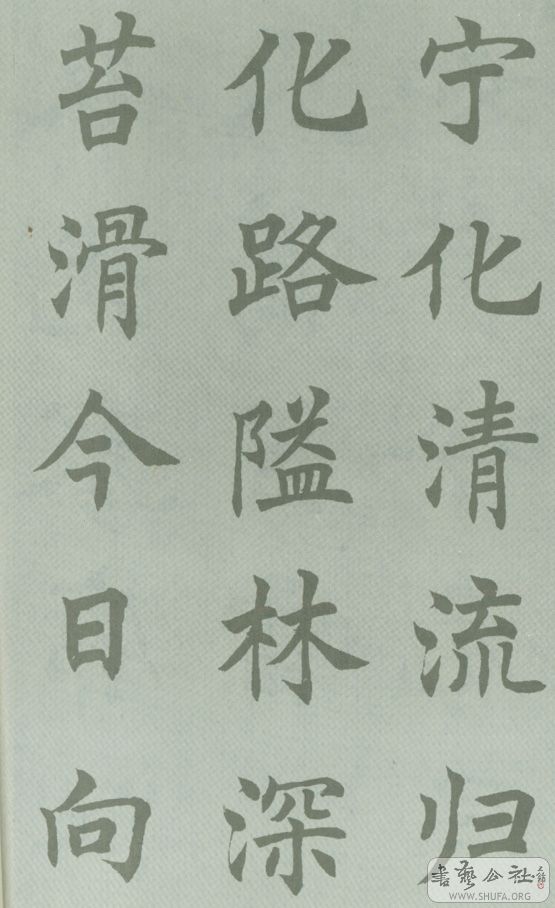 宁化清流归
化路隘林深
苔滑今日向
書藝公社
WWW.SHUFA.ORG